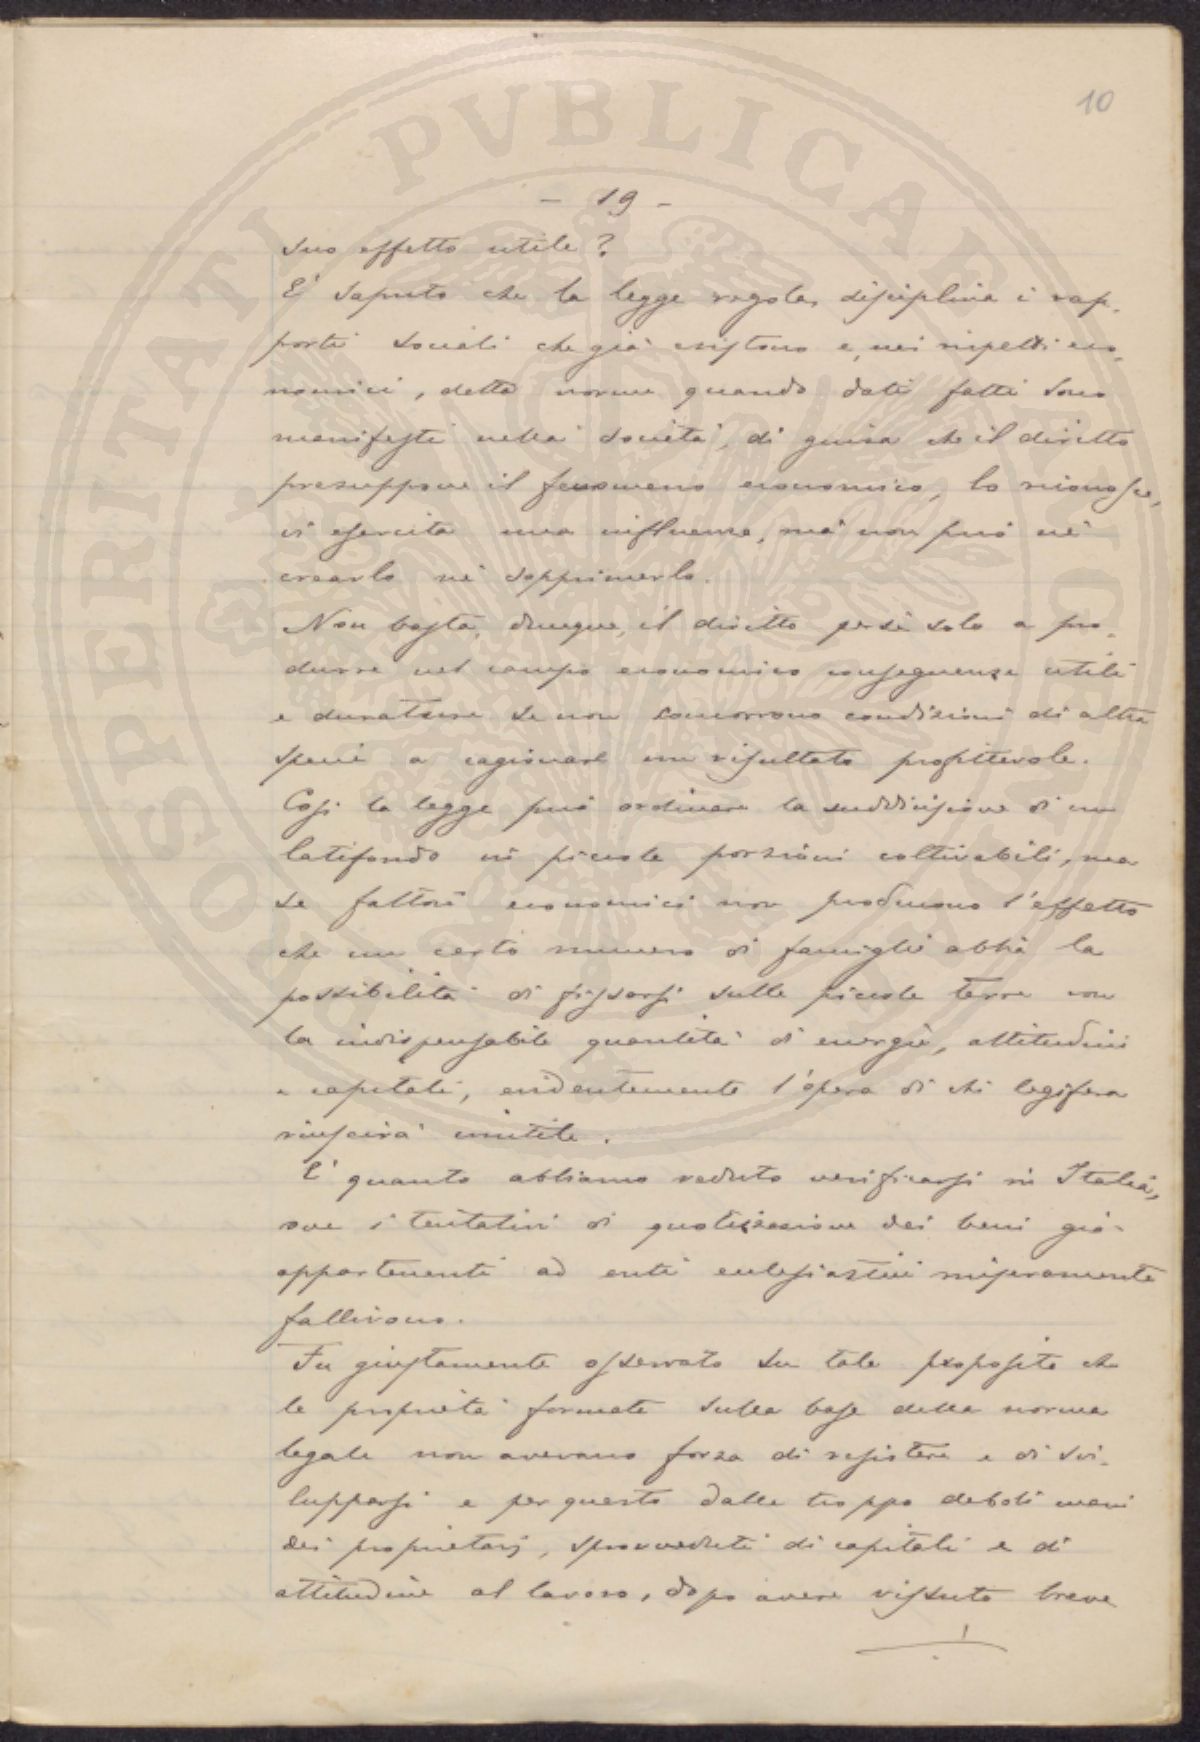 10
- 19 -
suo effetto utile?
E' saputo che la legge regola, disciplina i rap-
porti sociali che già esistono e, nei rispetti eco-
nomici, detta norme quando dati fatti sono
manifesti nella società, di guisa che il diritto
presuppone il fenomeno economico, lo riconosce,
vi esercita una influenza, ma non può nè
crearlo nè sopprimerlo.
Non basta, dunque, il diritto per sè solo a pro-
durre nel campo economico conseguenze utili
e durature se non concorrono condizioni di altra
specie a cagionare un risultato profittevole.
Così la legge può ordinare la suddivisione di un
latifondo in piccole porzioni coltivabili, ma
se fattori economici non producono l'effetto
che un certo numero di famiglie abbia la
possibilità di fissarsi sulle piccole terre con
la indispensabile quantità di energie, attitudini
e capitali, evidentemente l'opera di chi legifera
riuscirà inutile.
E' quanto abbiamo veduto verificarsi in Italia,
ove i tentativi di quotizzazione dei beni già
appartenenti ad enti ecclesiastici miseramente
fallirono.
Fu giustamente osservato su tale proposito che
le proprietà formate sulla base della norma
legale non avevano forza di resistere e di svi-
lupparsi e per questo dalle troppo deboli mani
dei proprietarj, sprovveduti di capitali e di
attitudine al lavoro, dopo avere vissuto breve
PROSPERITATI PVBLICAE